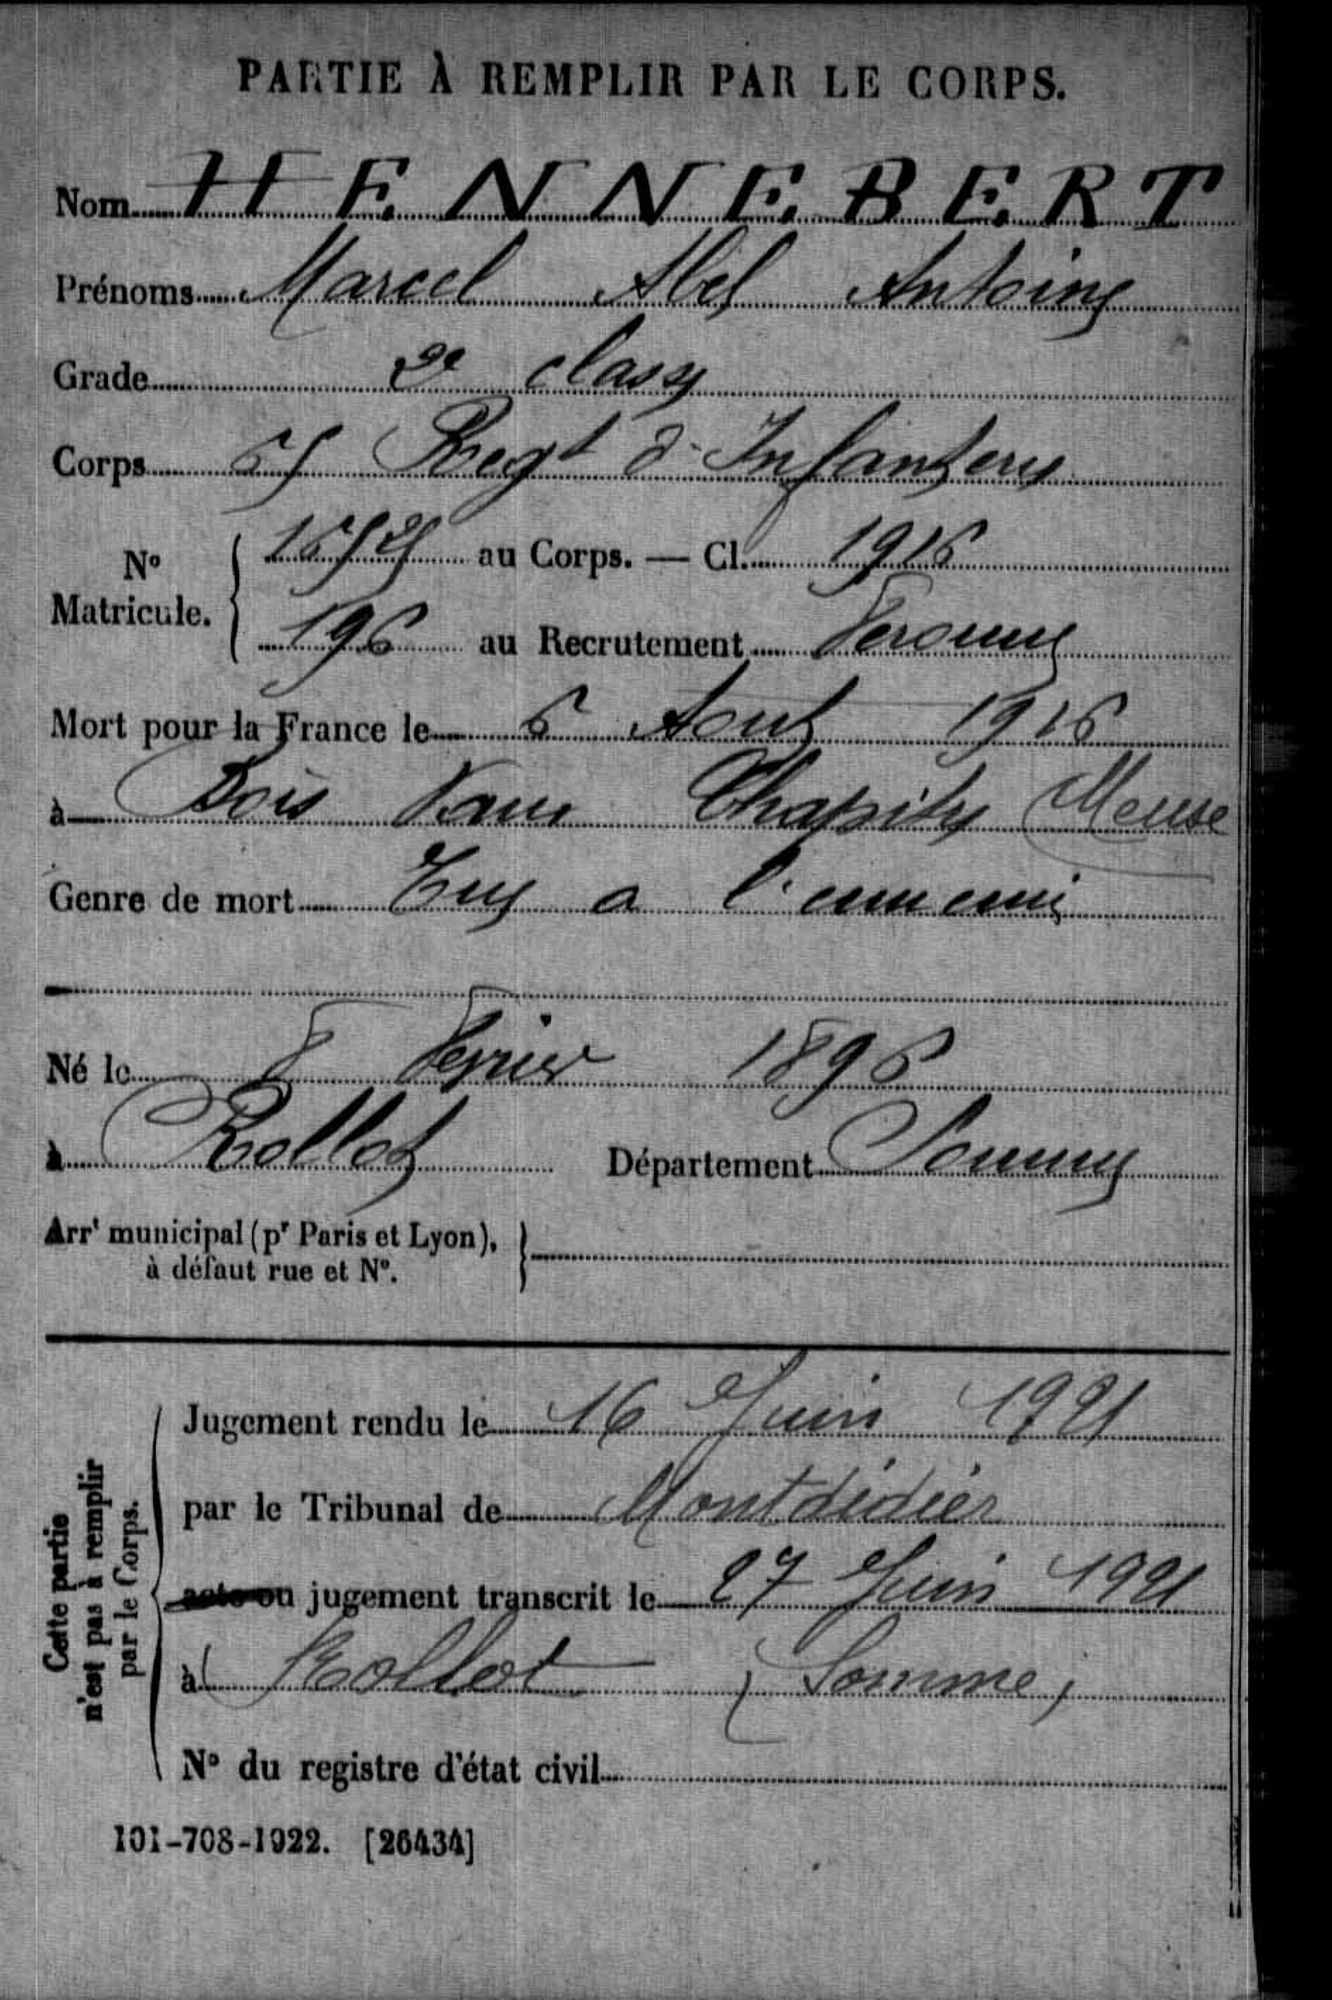 PARTIE À REMPLIR PAR LE CORPS.
Nom HENNEBERT
Prénoms Marcel Abel Antoine
Grade 2e classe
Corps Regt d'Infanterie
No Matricule. au Corps. — Cl. 1916
196 au Recrutement Peronne
Mort pour la France le 6 Aout 1916
à Bois Vaux Chapitre (Meuse
Genre de mort Tué a l'ennemi
Né le 8 Fevrier 1896
à Rollot Département Somme
Arrt municipal (pr Paris et Lyon), à défaut rue et No.
Cette partie n'est pas à remplir par le Corps.
Jugement rendu le 16 Juin 1921
par le Tribunal de Montdidier
acte ou jugement transcrit le 27 Juin 1921
à Rollot (Somme)
No du registre d'état civil
101-708-1922. [26434]